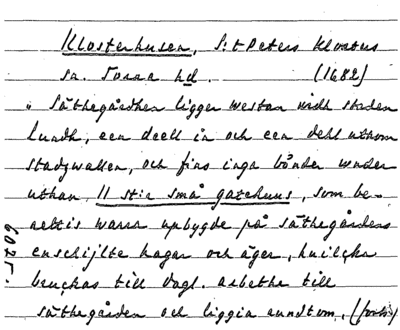 Klosterhusen, S:t Peters Klosters
sn. Torna hd. (1682)
"Säthegårdhen ligger westan widh staden
Lundh, een deell in och een dehl uthom
stadzwallen, och fins inga bönder under
uthan 11 st:n små gatehuus, som be-
rettis warra upbygde på säthegårdens
enschijlte hagar och åger, huilcka
bruckas till dagl. arbethe till
säthegården och liggia rundtom. (forts)
6025.